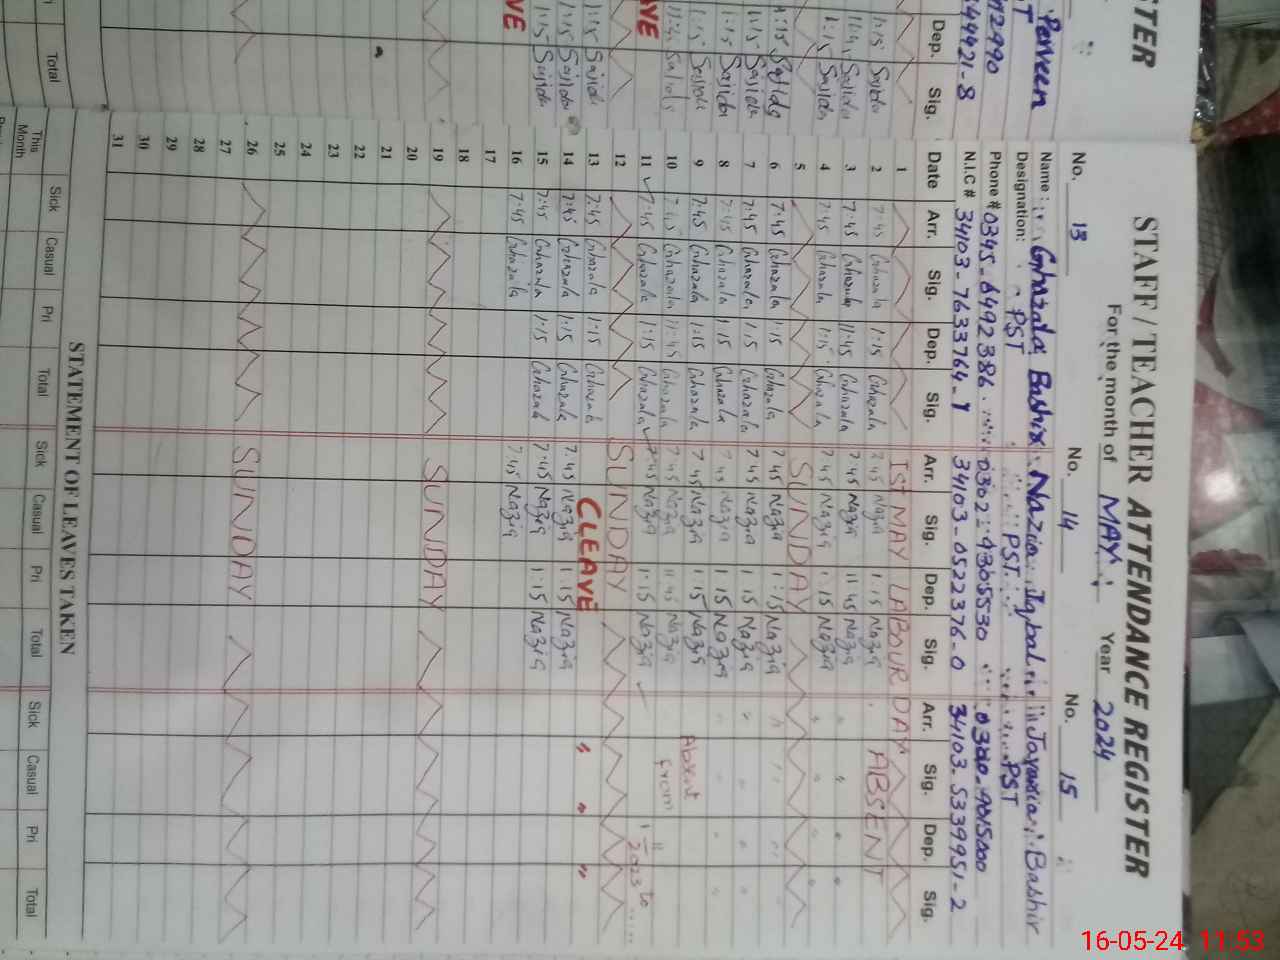 STAFF / TEACHER ATTENDANCE REGISTER
For the month of MAY Year 2024
No. 13 No. 14 No. 15
Name: Ghazala Bashir Nazia Iqbal Bashir
Designation: PST PST PST
Phone # 0345-6492386 0302-9365530
N.I.C # 34103-7633764-9 34103-0522376-0 34103-5339951-2
Date Arr. Sig. Dep. Sig. Arr. Sig. Dep. Sig. Arr. Sig. Dep. Sig.
1 1ST MAY LABOUR DAY
2 7:45 Ghazala 1:15 Ghazala 7:45 Nazia 1:15 Nazia ABSENT
3 7:45 Ghazala 11:45 Ghazala 7:45 Nazia 11:45 Nazia " " " "
4 7:45 Ghazala 1:15 Ghazala 7:45 Nazia 1:15 Nazia " " " "
5 SUNDAY
6 7:45 Ghazala 1:15 Ghazala 7:45 Nazia 1:15 Nazia " " "
7 7:45 Ghazala 1:15 Ghazala 7:45 Nazia 1:15 Nazia " " " "
8 7:45 Ghazala 1:15 Ghazala 7:45 Nazia 1:15 Nazia " " " "
9 7:45 Ghazala 1:15 Ghazala 7:45 Nazia 1:15 Nazia Absent
10 7:45 Ghazala 11:45 Ghazala 7:45 Nazia 11:45 Nazia from
11 7:45 Ghazala 1:15 Ghazala 7:45 Nazia 1:15 Nazia 1-11-2023 to
12 SUNDAY
13 7:45 Ghazala 1:15 Ghazala CLEAVE " " "
14 7:45 Ghazala 1:15 Ghazala 7:45 Nazia 1:15 Nazia
15 7:45 Ghazala 1:15 Ghazala 7:45 Nazia 1:15 Nazia
16 7:45 Ghazala 7:45 Nazia
17
18
19 SUNDAY
20
21
22
23
24
25
26 SUNDAY
27
28
29
30
31
STATEMENT OF LEAVES TAKEN
Sick Casual Pri Total Sick Casual Pri Total Sick Casual Pri Total
This Month
STER
Perveen
Dep. Sig.
Total
16-05-24 11:53